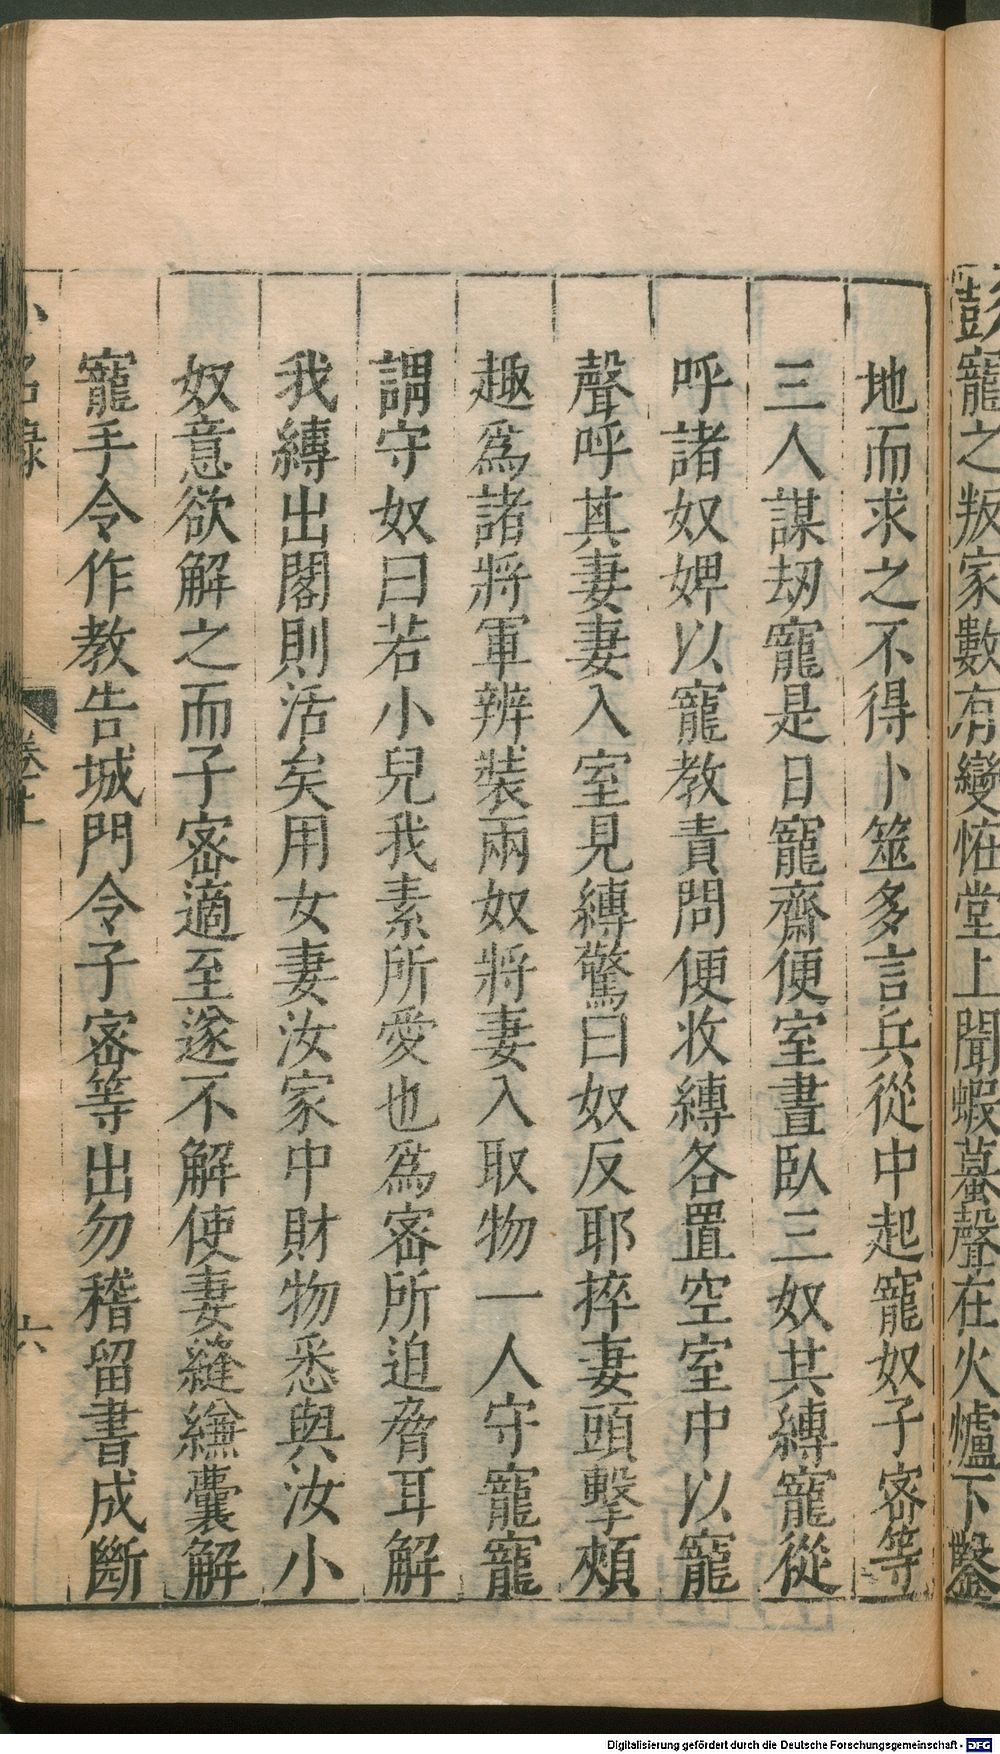 彭寵之叛家數有變怪堂上聞蝦蟇聲在火爐下鑿
地而求之不得卜筮多言兵從中起寵奴子密等
三人謀劫寵是日寵齋便室晝臥三奴共縛寵從
呼諸奴婢以寵教責問便收縛各置空室中以寵
聲呼其妻妻入室見縛驚曰奴反耶捽妻頭擊頰
趣爲諸將軍辨裝兩奴將妻入取物一人守寵寵
謂守奴曰若小兒我素所愛也爲密所迫脅耳解
我縛出閣則活矣用女妻汝家中財物悉與汝小
奴意欲解之而子密適至遂不解使妻縫縑囊解
寵手令作教告城門令子密等出勿稽留書成斷
小名錄 卷上 六
Digitalisierung gefördert durch die Deutsche Forschungsgemeinschaft - DFG